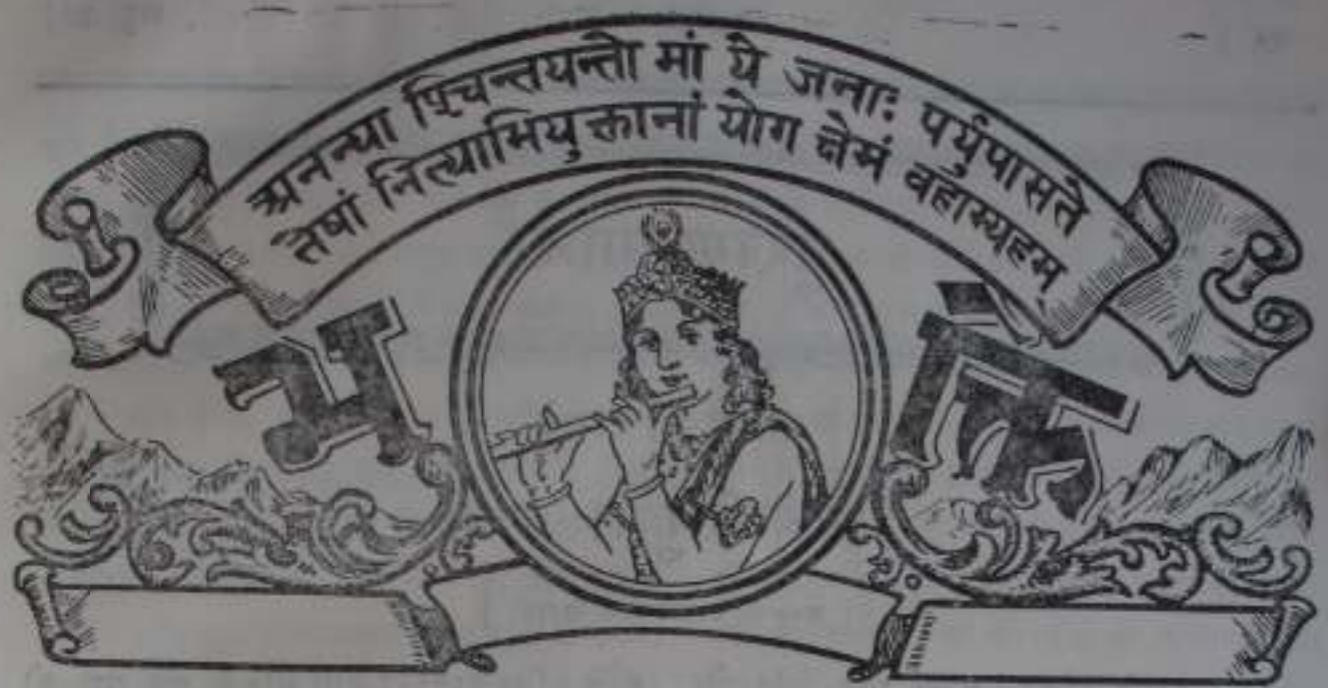 अनन्या श्चिन्तयन्तो मां ये जनाः पर्युपासते
तेषां नित्याभियुक्तानां योग क्षेमं वहाम्यहम्
भक्ति